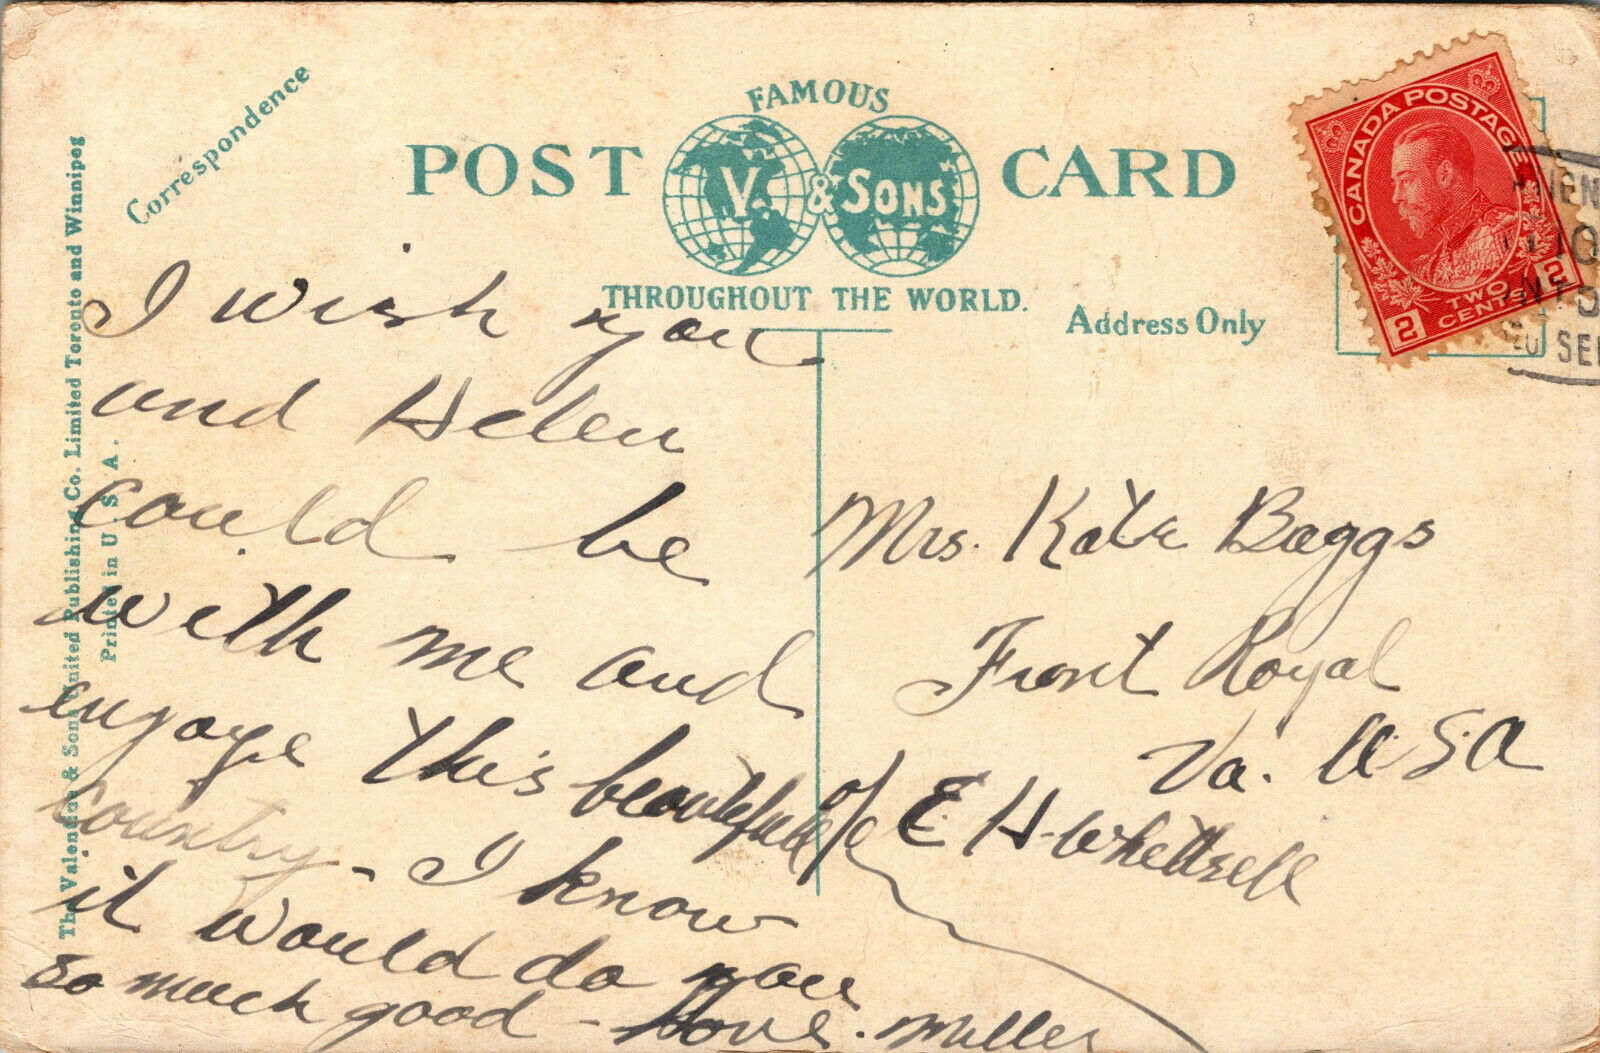 Correspondence
FAMOUS
POST CARD
V. & SONS
THROUGHOUT THE WORLD.
Address Only
The Valentine & Sons United Publishing Co. Limited Toronto and Winnipeg
Printed in U. S. A.
CANADA POSTAGE
2 TWO CENTS 2
10
SE
I wish you
and Helen
could be
with me and
enjoye this beautiful
country - I know
it would do you
so much good - Love. Miller
Mrs. Kate Baggs
Front Royal
Va. U.S.A
c/o E. H. Whettzell